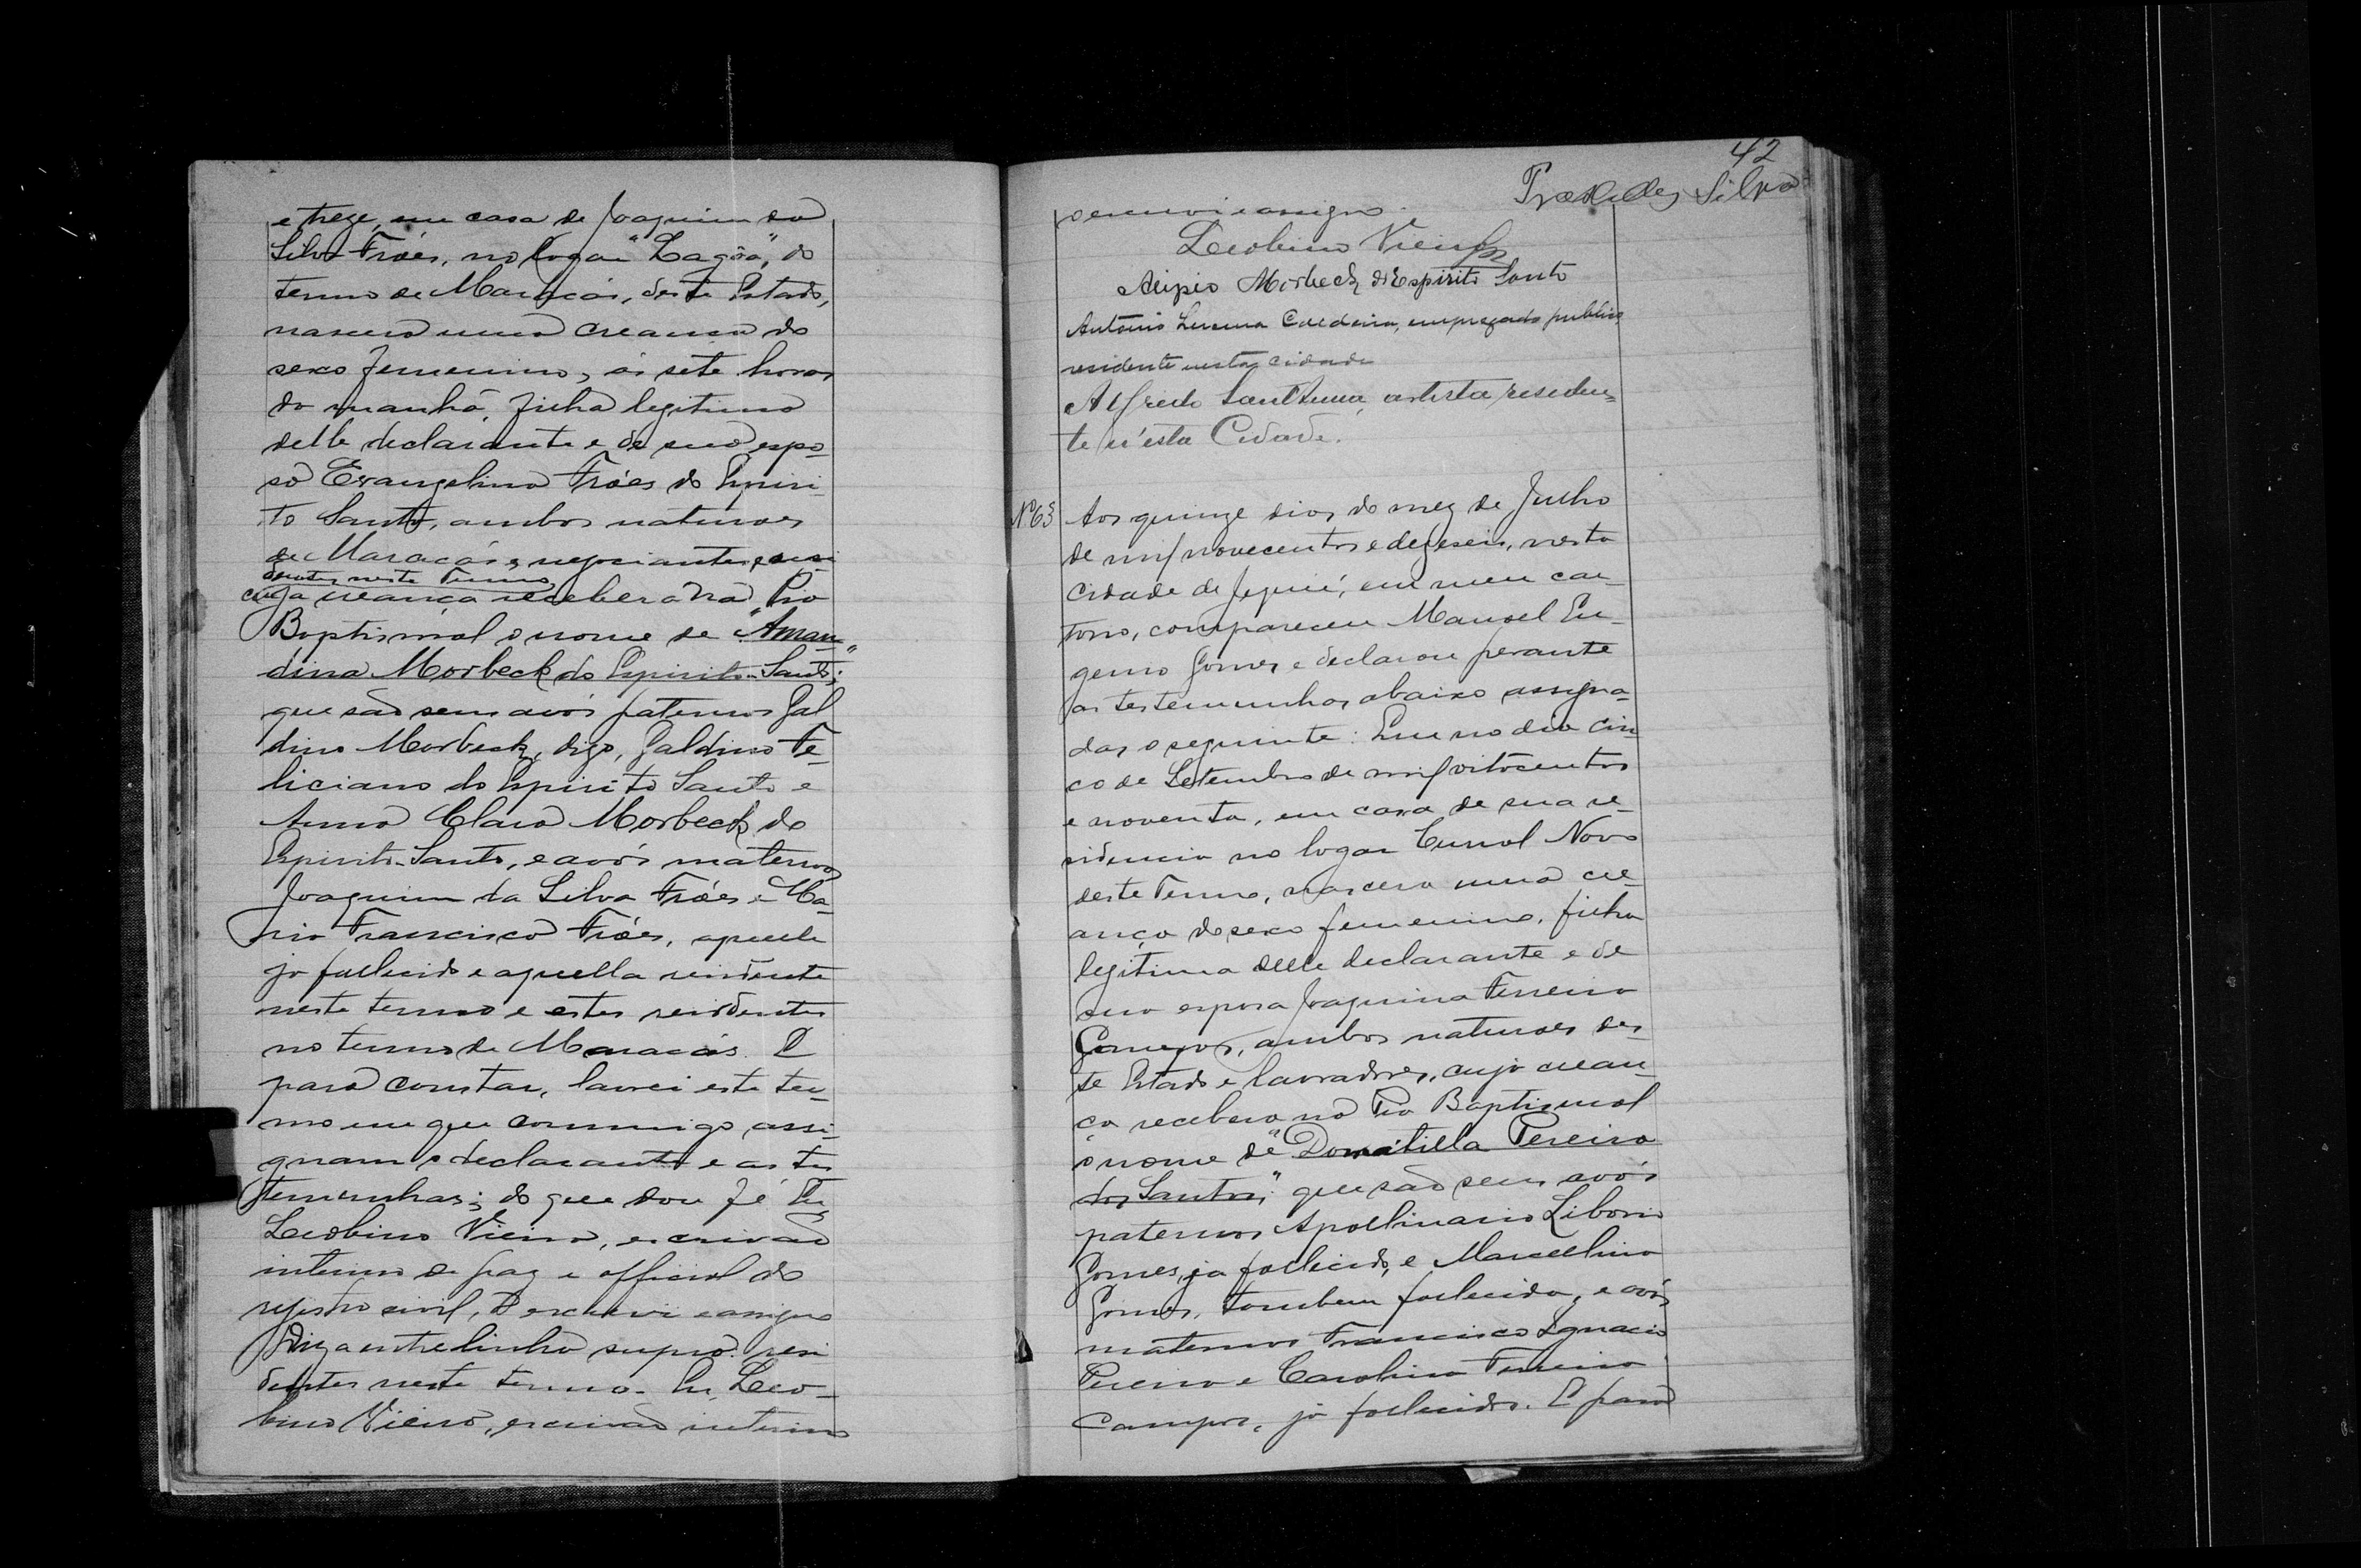 e treze, em casa de Joaquim da
Silva Fróes, no logar "Lagôa", do
termo de Maracás, deste Estado,
nascera uma creança do
sexo femenino, ás sete horas
da manhã, filha legitima
delle declarante e de sua espo-
sa Evangelina Fróes do Espiri-
to Santo, ambos naturaes
de Maracás, negociantes, e resi
dentes neste Termo,
cuja creança receberá na Pia
Baptismal o nome de "Aman-
dina Morbeck do Espirito-Santo";
que são seus avós paternos Gal
dino Morbeck, digo, Galdino Fe-
liciano do Espirito Santo e
Anna Clara Morbeck do
Espirito-Santo, e avós maternos
Joaquim da Silva Fróes e Ma-
ria Francisca Fróes, aquelle
já fallecido e aquella residente
neste termo e estes residentes
no termo de Maracás. E
para constar, lavrei este ter-
mo em que commigo assi-
gnam o declarante e as tes
temunhas; do que dou fé. Eu,
Leobino Vieira, escrivão
interino de paz e official do
registro civil, o escrevi e assigno
Diz a entrelinha supra: resi
dentes neste termo. Eu, Leo-
bino Vieira, escrivão interino
42
Praxedes Silva
o escrevi e assigno.
Leobino Vieira
Alipio Morbeck do Espirito Santo
Antonio Lucena Caldeira, empregado publico,
residente nesta cidade
Alfredo Sant'Anna, artista residen-
te n'esta Cidade.
Nº 63
Aos quinze dias do mez de Julho
de mil novecentos e dezeseis, nesta
cidade de Jequié, em meu car-
torio, compareceu Manoel Eu-
genio Gomes e declarou perante
as testemunhas abaixo assigna-
das o seguinte: Que no dia cin
co de Setembro de mil oitocentos
e noventa, em casa de sua re-
sidencia no logar Curral Novo
deste Termo, nascera uma cre-
ança do sexo femenino, filha
legitima delle declarante e de
sua esposa Joaquina Ferreira
Campos, ambos naturaes des-
te Estado e lavradores, cuja crean-
ça recebera na Pia Baptismal
o nome de "Domitilla Pereira
dos Santos"; que são seus avós
paternos Apollinario Liborio
Gomes, já fallecido, e Marcellina
Gomes, tambem fallecida, e avós
maternos Francisco Ignacio
Pereira e Carolina Ferreira
Campos, já fallecidos. E para